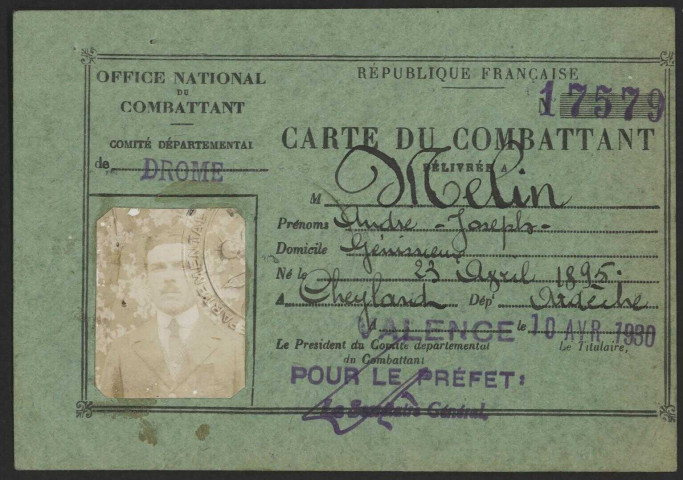 OFFICE NATIONAL
DU
COMBATTANT
COMITÉ DÉPARTEMENTAL
de DROME
RÉPUBLIQUE FRANÇAISE
17579
CARTE DU COMBATTANT
DÉLIVRÉE A
M Melin
Prénoms André - Joseph -
Domicile Génissieux
Né le 23 Avril 1895.
A Cheylard Dépt Ardèche
A VALENCE le 10 AVR 1930
Le Président du Comité départemental
du Combattant:
Le Titulaire,
POUR LE PRÉFET:
Le Secrétaire Général,